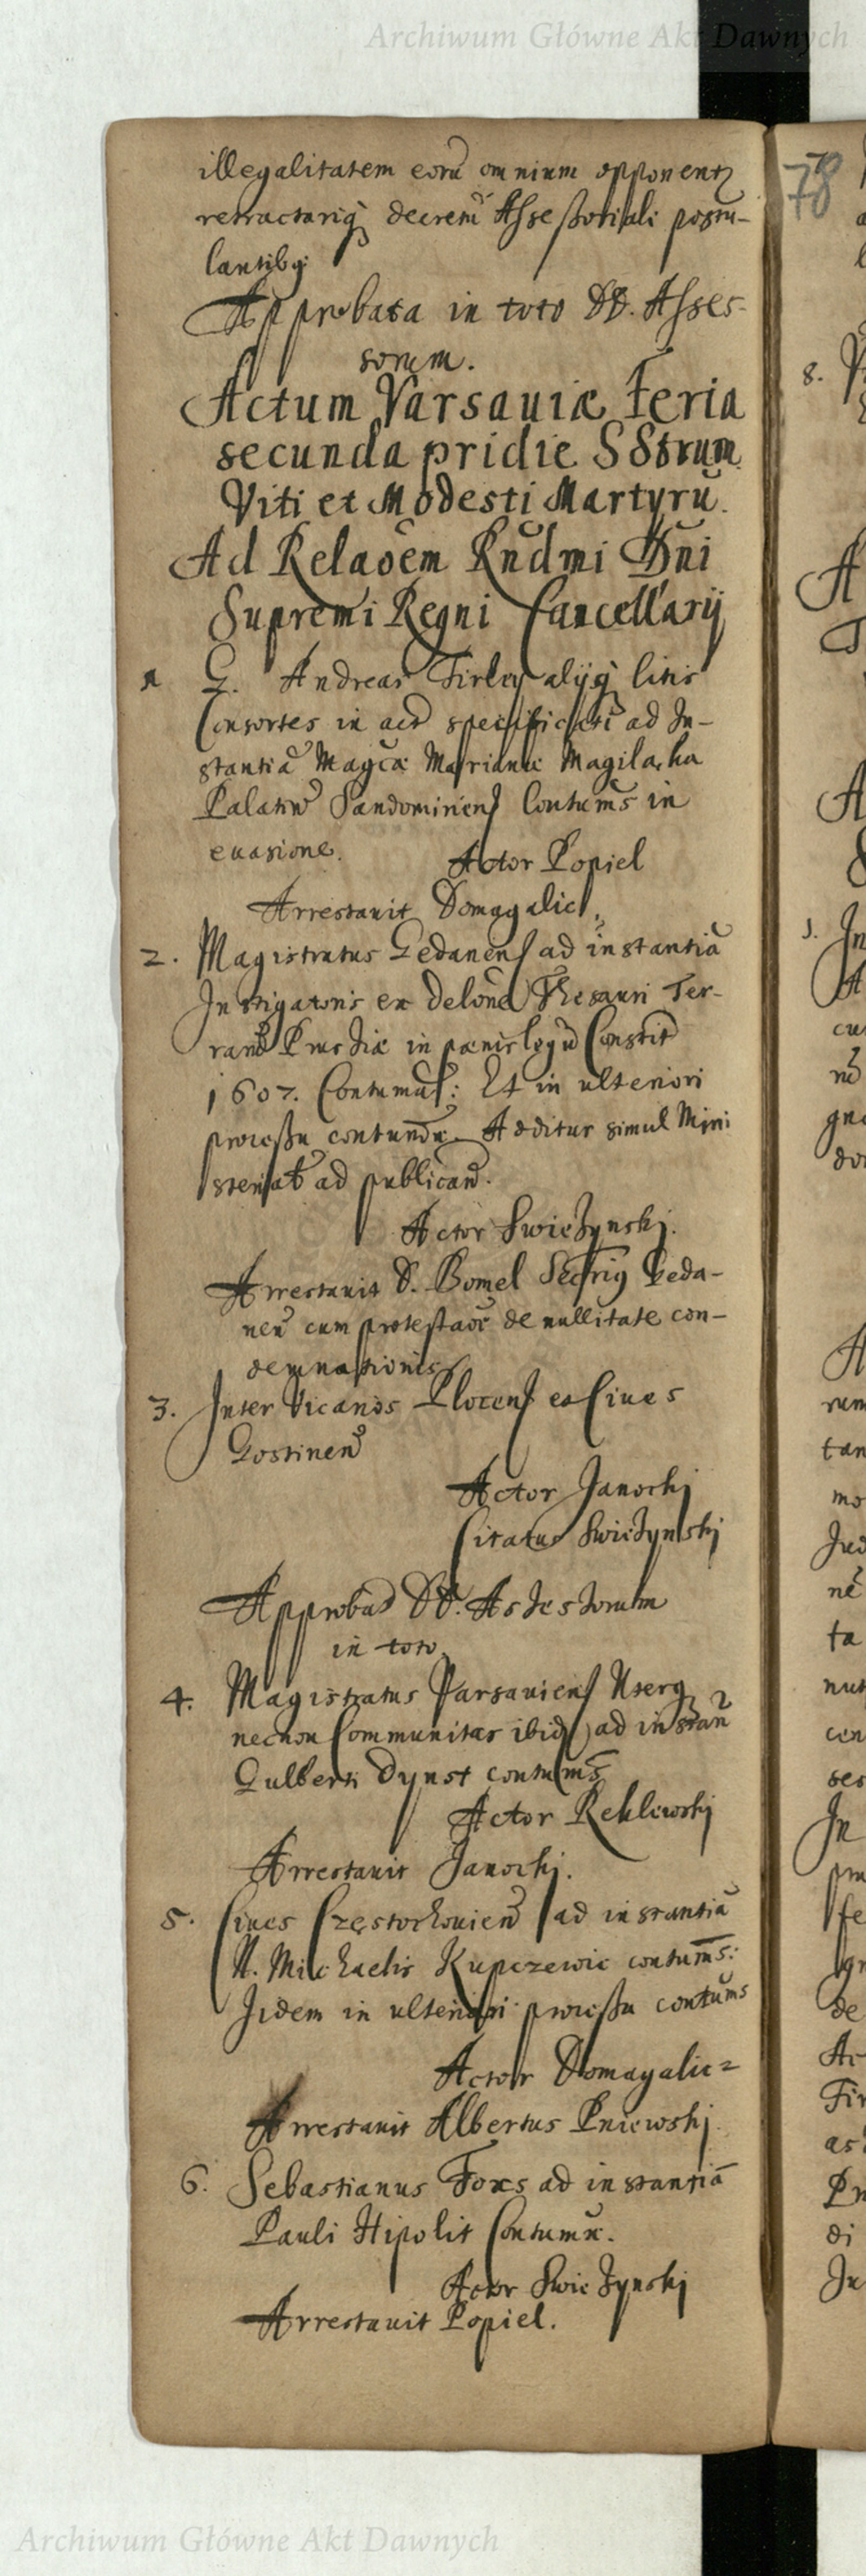 Archiwum Główne Akt Dawnych
78
illegalitatem eorū omnium opponent
retractariq decretū Assessoriali postu-
lantibq
Approbata in toto DD. Asses-
sorum.
Actum Varsaviæ Feria
secunda pridie SStrum
Viti et Modesti Martyrū.
Ad Relaoēm Rndmi Dni
Supremi Regni Cancellarij
1 G. Andreas Firley alijq litis
Consortes in act specificati ad In-
stantiā Magcæ Mariannæ
Palatin Sandomiriens Contums in
euasione.
Actor Popiel
Arrestauit Domagalic
2. Magistratus Gedanens ad instantiā
Instigatoris ex delone Thesauri Ter-
rarū Prussiæ in pænis legū Constit
1607. Contumat: Et in ulteriori
processu contum. Additur simul Mini
steriat ad publicand.
Actor Swieżynski.
Arrestauit D. Bomel Secrriq Geda-
nen cum protestaoe de nullitate con-
demnationis
3. Inter Vicarios Plocens et Ciues
Gostinen
Actor Janocki
Citatus Swieżynski
Approbat DD. Assessorum
in toto
4. Magistratus Varsauiens Uterq
necnon Communitas ibid ad instan
Gulberti Dynst contums
Actor Reklewski
Arrestauit Janocki.
5. Ciues Częstochouien ad instantiā
N. Michaelis Kupczewic contums:
Iidem in ulteriori processu contums
Actor Domagalic=
Arrestauit Albertus Pniewski
6. Sebastianus Foxs ad instantiā
Pauli Hipolit Contumx.
Actor Swieżynski
Arrestauit Popiel.
8.
Archiwum Główne Akt Dawnych